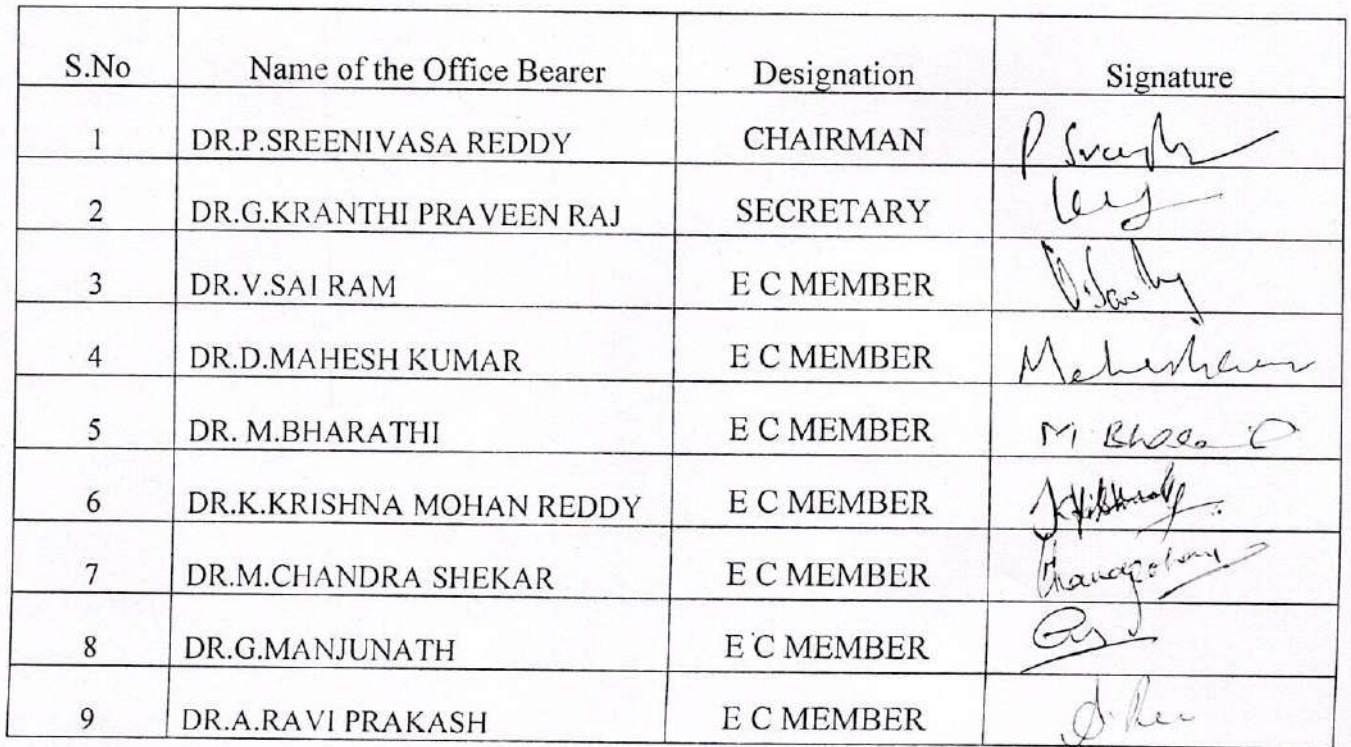 S.No Name of the Office Bearer Designation Signature
1 DR.P.SREENIVASA REDDY CHAIRMAN
2 DR.G.KRANTHI PRAVEEN RAJ SECRETARY
3 DR.V.SAI RAM E C MEMBER
4 DR.D.MAHESH KUMAR E C MEMBER
5 DR. M.BHARATHI E C MEMBER
6 DR.K.KRISHNA MOHAN REDDY E C MEMBER
7 DR.M.CHANDRA SHEKAR E C MEMBER
8 DR.G.MANJUNATH E C MEMBER
9 DR.A.RAVI PRAKASH E C MEMBER